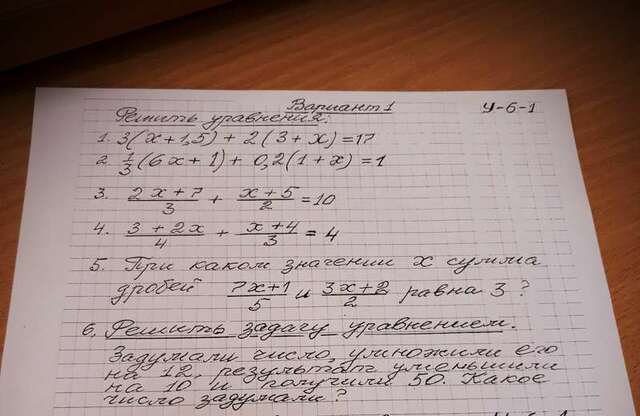 Вариант 1 У-6-1
Решить уравнения:
1. 3(x+1,5) + 2(3+x) = 17
2. 1/3(6x+1) + 0,2(1+x) = 1
3. (2x+7)/3 + (x+5)/2 = 10
4. (3+2x)/4 + (x+4)/3 = 4
5. При каком значении x сумма
дробей (7x+1)/5 и (3x+2)/2 равна 3?
6. Решить задачу уравнением.
Задумали число, умножили его
на 12, результат уменьшили
на 10 и получили 50. Какое
число задумали?